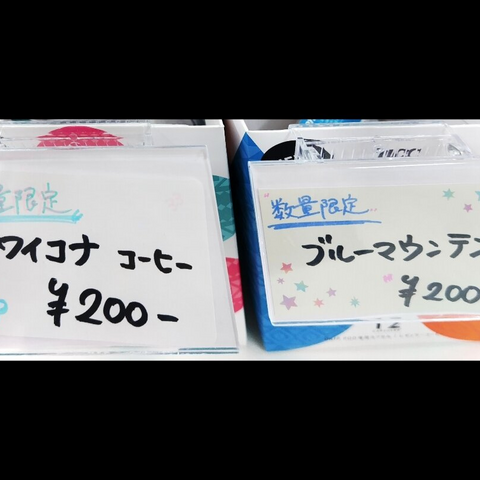 量限定
ワイコナ コーヒー
¥200-
数量限定
ブルーマウンテン
¥200
12